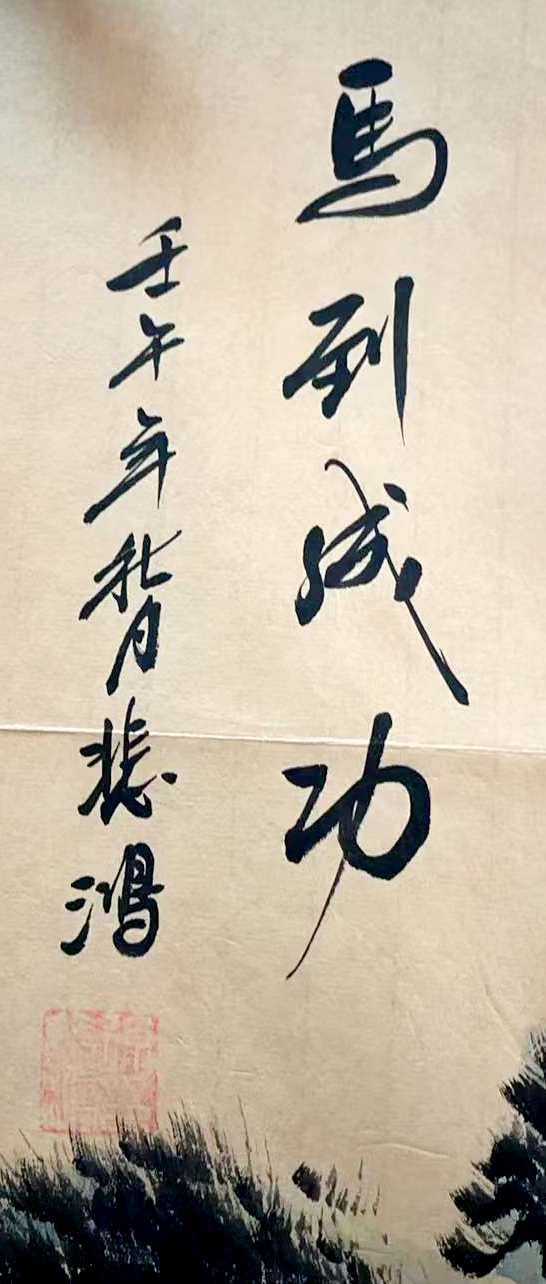 馬到成功
壬午年秋月悲鴻